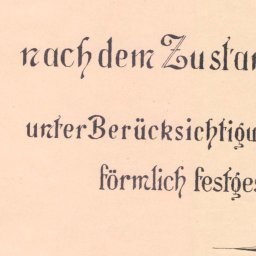 nach dem Zustan
unter Berücksichtigu
förmlich festges